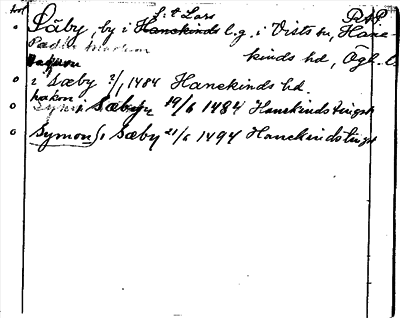 S:t Lars RAP
Säby, by i Hanekinds l.g. i Vists sn, Hane-
kinds hd, Ögl.
i Sæby 2/1 1484 Hanekinds hd.
hakon i Sæby 19/6 1484 Hanekindstingst
Symon i Sæby 21/6 1494 Hanekindstingst